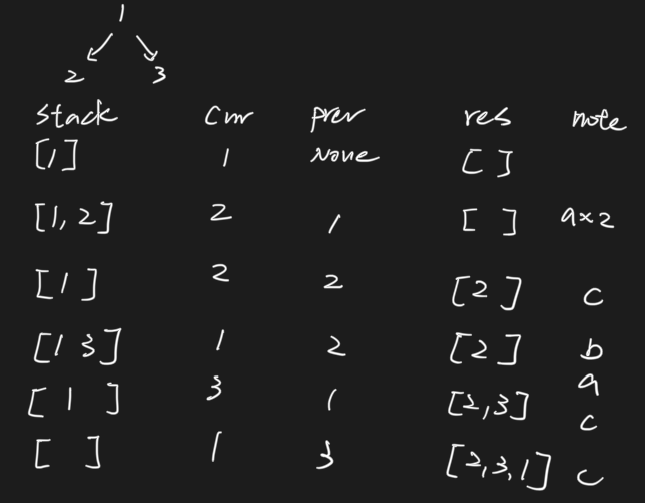 1
2 3
stack Curr prev res note
[1] 1 None [ ]
[1, 2] 2 1 [ ] a×2
[1] 2 2 [2] c
[1 3] 1 2 [2] b
a
[1] 3 1 [2,3] c
[ ] 1 3 [2,3,1] c